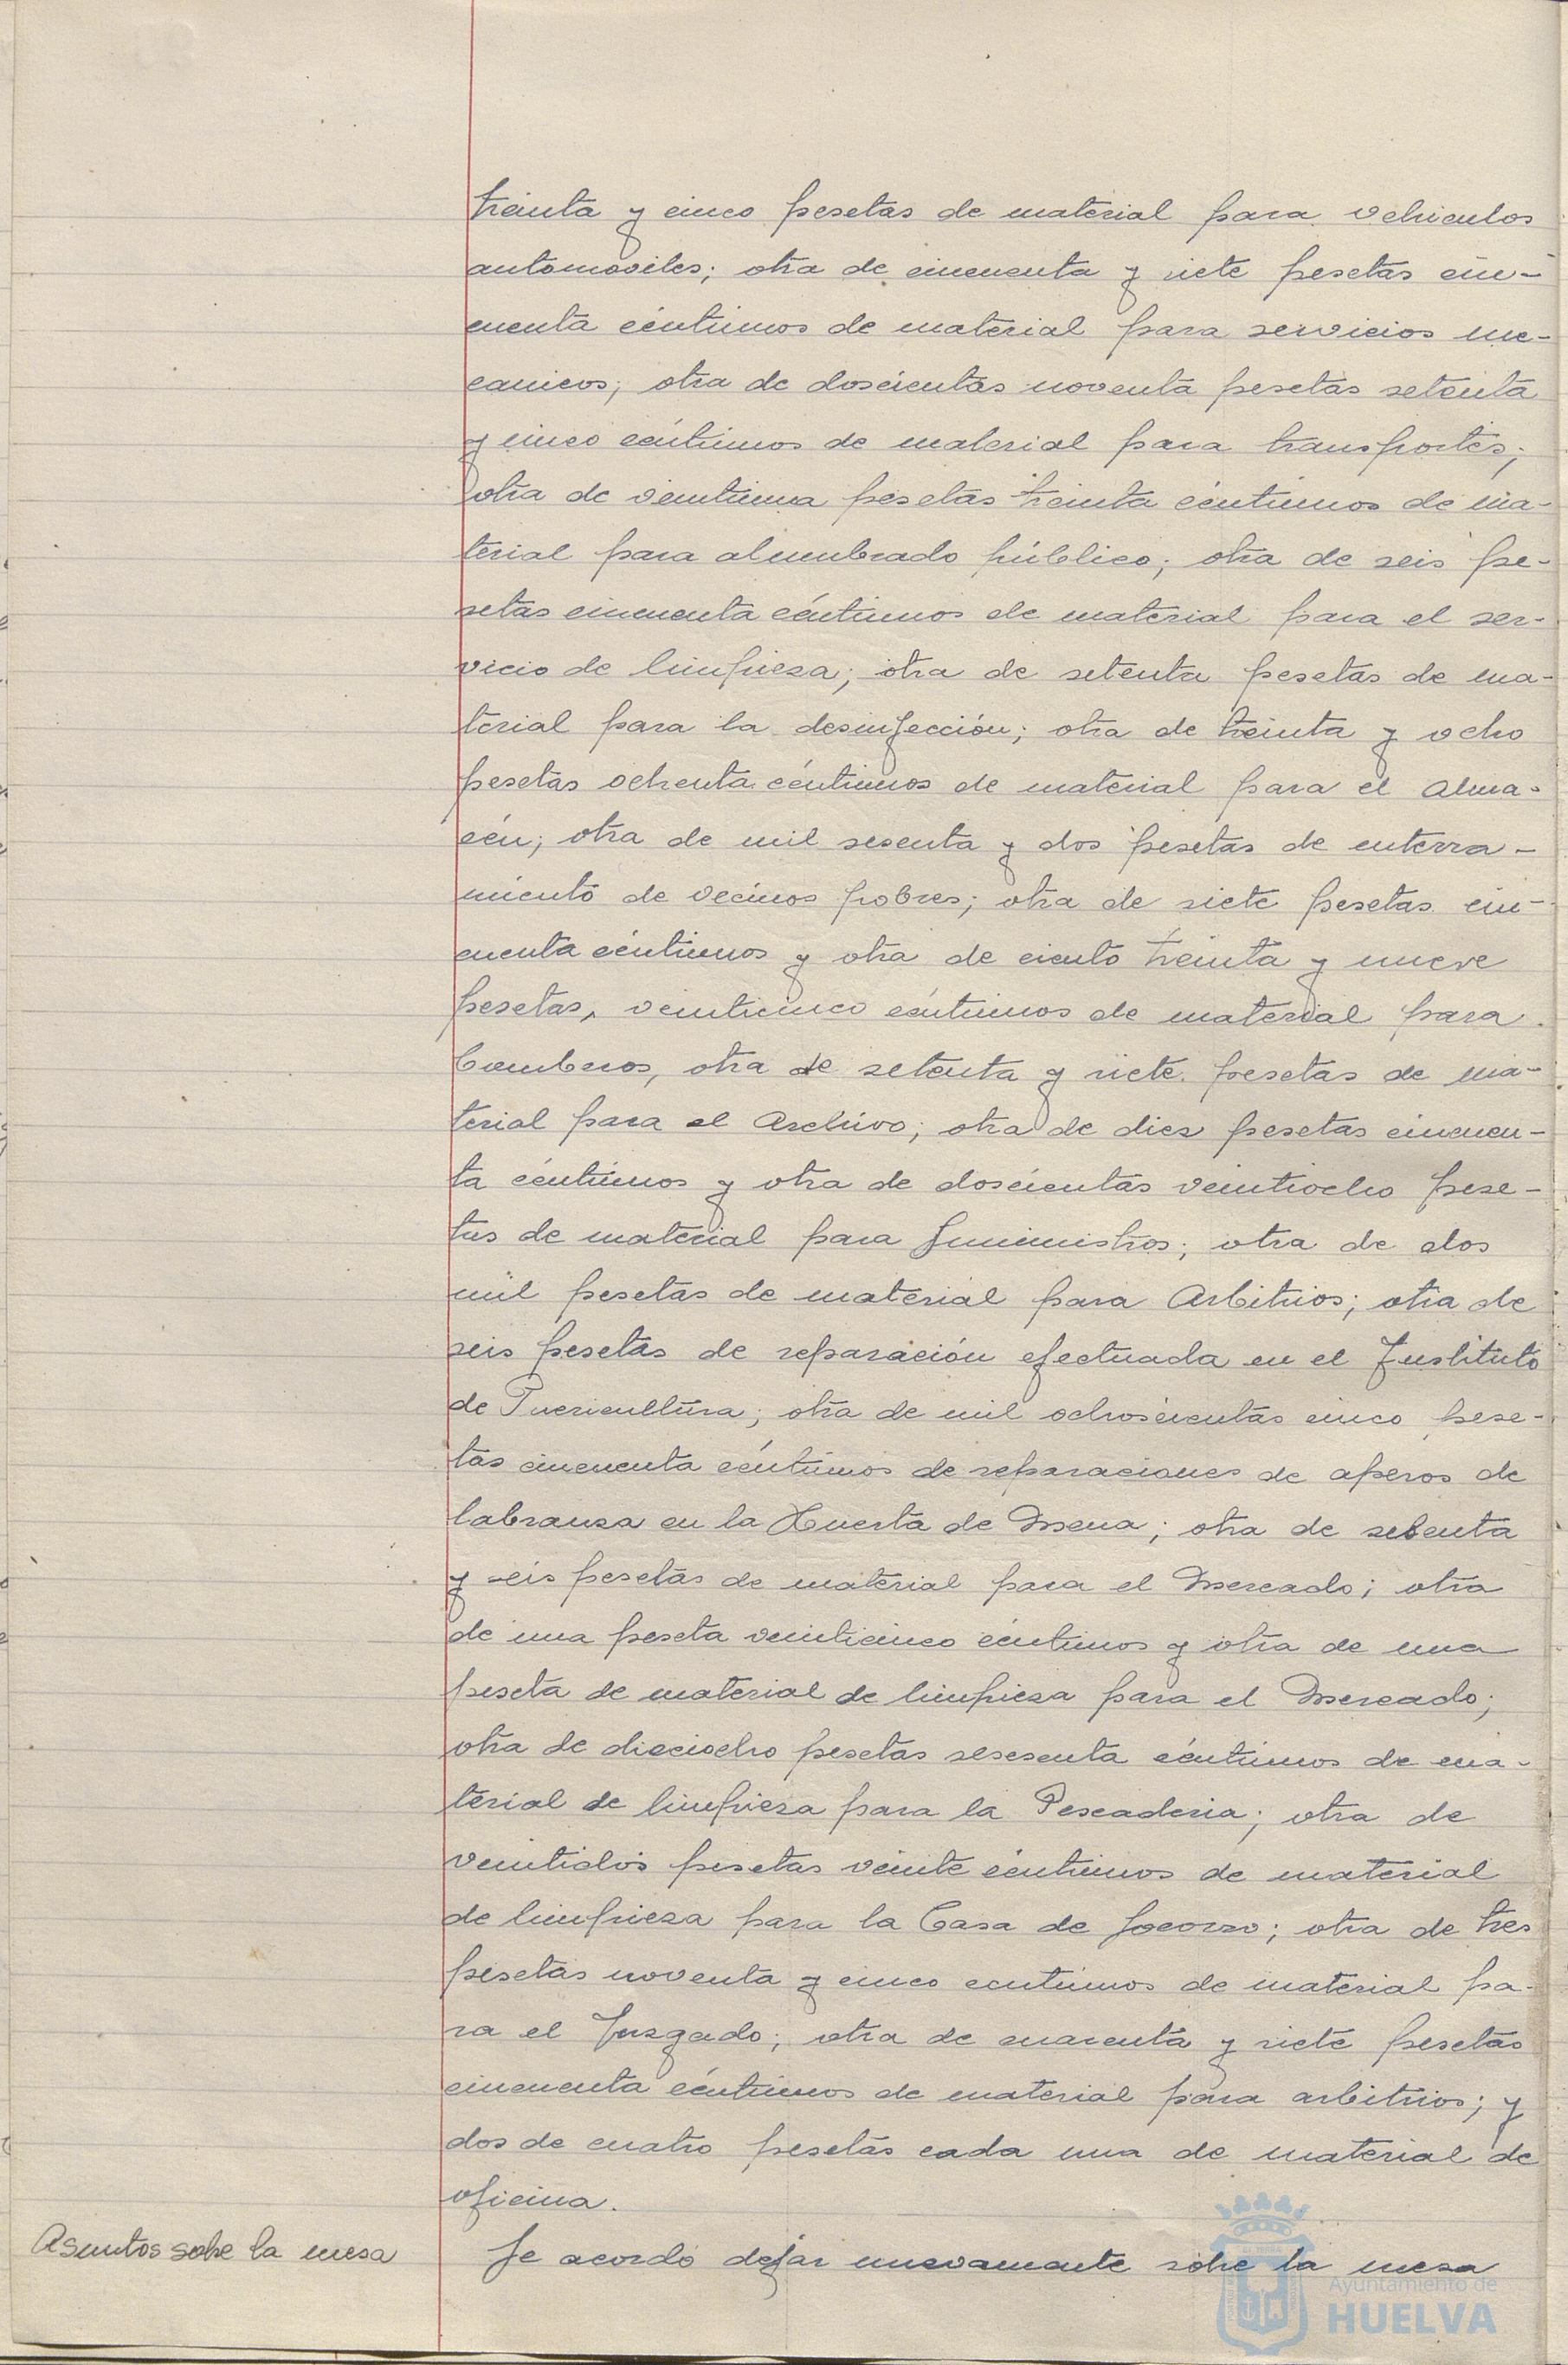 treinta y cinco pesetas de material para vehiculos
automoviles; otra de cincuenta y siete pesetas cin-
cuenta céntimos de material para servicios me-
canicos; otra de doscientas noventa pesetas setenta
y cinco céntimos de material para transportes;
otra de veintiuna pesetas treinta céntimos de ma-
terial para alumbrado público; otra de seis pe-
setas cincuenta céntimos de material para el ser-
vicio de limpieza; otra de setenta pesetas de ma-
terial para la desinfección; otra de treinta y ocho
pesetas ochenta céntimos de material para el Alma-
cén; otra de mil sesenta y dos pesetas de enterra-
miento de vecinos pobres; otra de siete pesetas cin-
cuenta céntimos y otra de ciento treinta y nueve
pesetas, veinticinco céntimos de material para
Bomberos, otra de setenta y siete pesetas de ma-
terial para el Archivo; otra de diez pesetas cincuen-
ta céntimos y otra de doscientas veintiocho pese-
tas de material para Suministros; otra de dos
mil pesetas de material para Arbitrios; otra de
seis pesetas de reparación efectuada en el Instituto
de Puericultura; otra de mil ochoscientas cinco pese-
tas cincuenta céntimos de reparaciones de aperos de
labranza en la Huerta de Mena; otra de setenta
y seis pesetas de material para el Mercado; otra
de una peseta veinticinco céntimos y otra de una
peseta de material de limpieza para el Mercado;
otra de dieciocho pesetas sesesenta céntimos de ma-
terial de limpieza para la Pescaderia; otra de
veintidós pesetas veinte céntimos de material
de limpieza para la Casa de Socorro; otra de tres
pesetas noventa y cinco centimos de material pa-
ra el Juzgado; otra de cuarenta y siete pesetas
cincuenta céntimos de material para arbitrios; y
dos de cuatro pesetas cada una de material de
oficina.
Asuntos sobre la mesa
Se acordó dejar nuevamente sobre la mesa
Ayuntamiento de
HUELVA